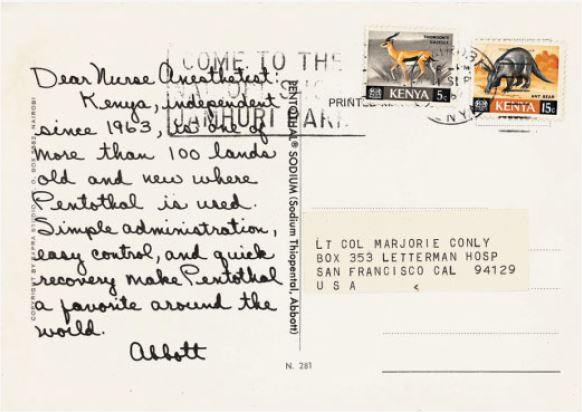 Dear Nurse Anesthetist:
Kenya, independent
since 1963, is one of
more than 100 lands
old and new where
Pentothal is used.
Simple administration,
easy control, and quick
recovery make Pentothal
a favorite around the
world.
Abbott
COME TO THE
JAMHURI PARK
PRINTED
PENTOTHAL® SODIUM (Sodium Thiopental, Abbott)
THOMSON'S
GAZELLE
KENYA 5c
ANT BEAR
KENYA 15c
LT COL MARJORIE CONLY
BOX 353 LETTERMAN HOSP
SAN FRANCISCO CAL 94129
U S A
N. 281